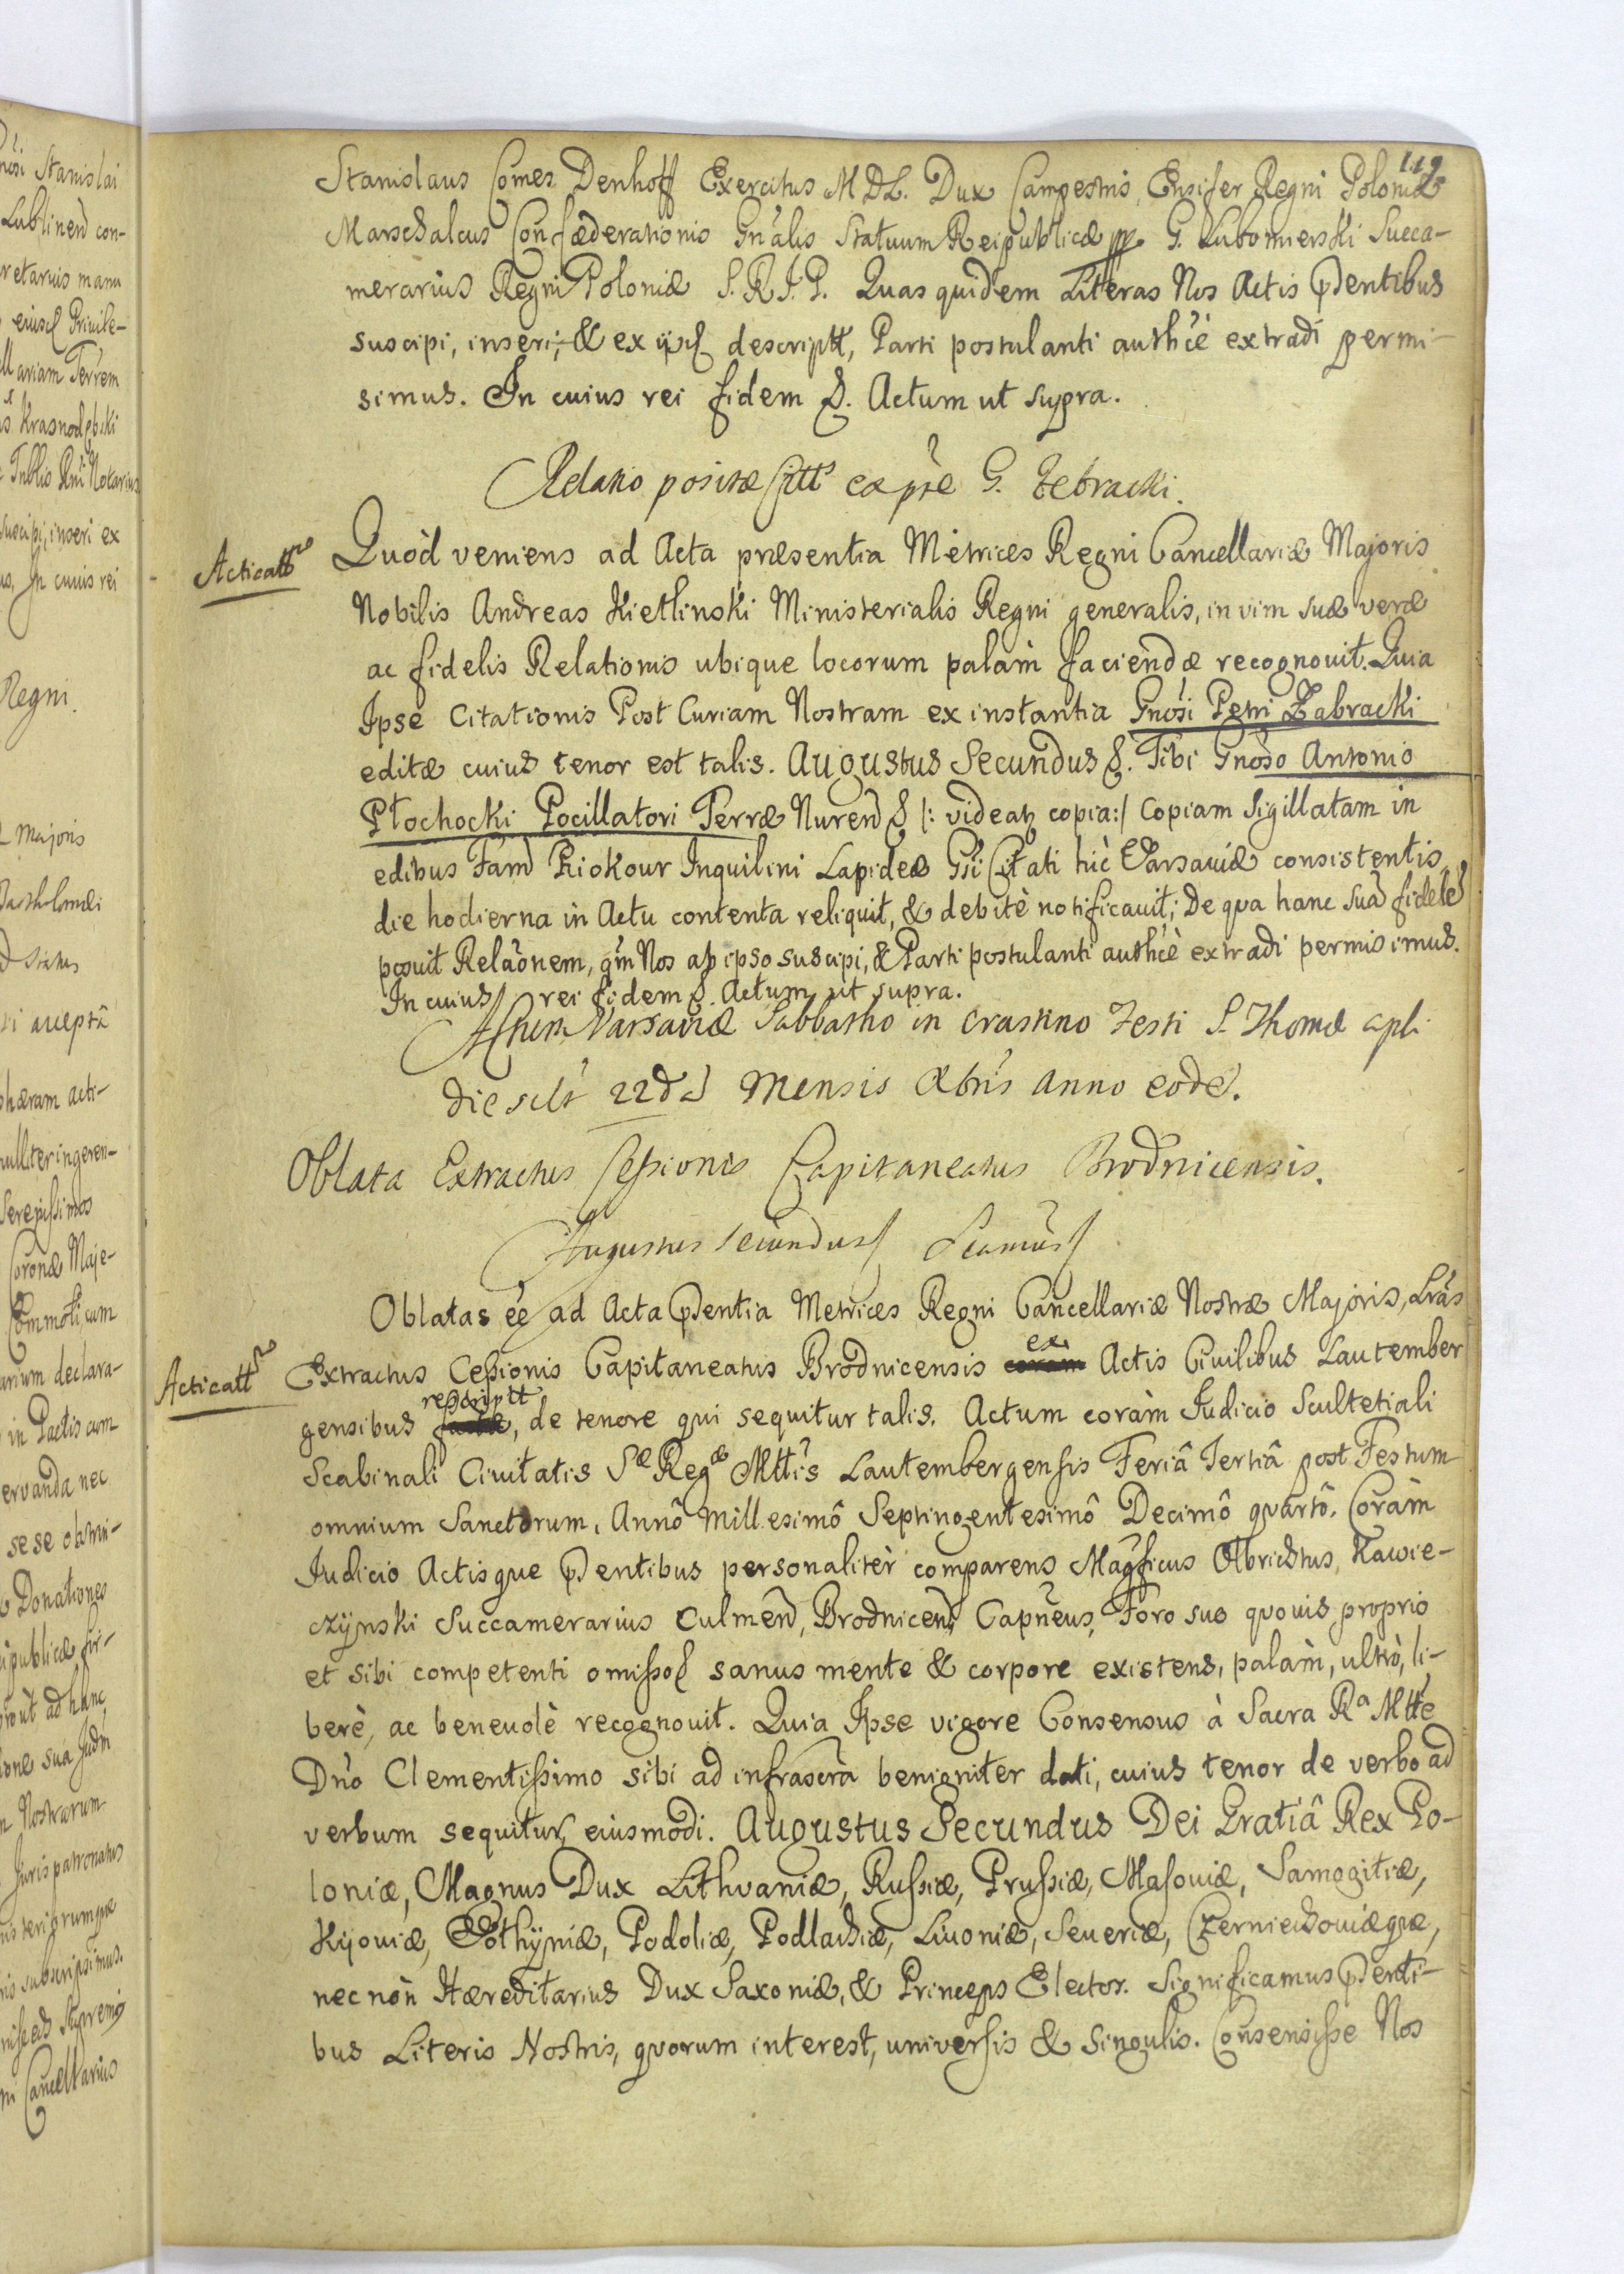 119
Stanislaus Comes Denhoff Exercitus M D L. Dux Campestris, Ensifer Regni Poloniæ
Marschalcus Confæderationis Gnâlis Statuum Reipublicæ pp. G. Lubomierski Succa-
merarius Regni Poloniæ S. R. I. P. Quas quidem Literas Nos Actis pdentibus
suscipi, inseri, & ex ijsd descriptt, Parti postulanti authcè extradi permi-
simus. In cuius rei fidem &. Actum ut supra.
Relatio positæ Citts ex pte G. Zebracki.
Acticatt
Quòd veniens ad Acta præsentia Metrices Regni Cancellariæ Majoris
Nobilis Andreas Kietlinski Ministerialis Regni generalis, in vim suæ veræ
ac fidelis Relationis ubique locorum palàm faciendæ recognouit. Quia
Ipse Citationis Post Curiam Nostram ex instantia Gnôsi Petri Zabracki
editæ cuius tenor est talis. Augustus Secundus &. Tibi Gnoso Antonio
Płochocki Pocillatori Terræ Nurend & /: videatz copia:/ Copiam Sigillatam in
edibus Famd Riokour Inquilini Lapideæ Gsi Citati hìc Varsauiæ consistentis
die hodierna in Actu contenta reliquit, & debitè notificauit; De qua hanc Suã fidelẽ
posuit Relãonem, qm Nos ab ipso suscipi, & Parti postulanti authcè extradi permisimus.
In cuius rei fidem &. Actum ut supra.
Actum Varsaviæ Sabbatho in crastino Festi S. Thomæ apli
die sclt 22dâ Mensis Xbris anno eodẽ.
Oblata Extractus Cessionis Capitaneatus Brodnicensis.
Augustus Secundus &
Oblatas ẽe ad Acta pdentia Metrices Regni Cancellariæ Nostræ Majoris, Lrãs
Acticatt
ex
Extractus Cessionis Capitaneatus Brodnicensis coram Actis Ciuilibus Lautember
rescriptt
gensibus, de tenore qui sequitur talis. Actum coràm Iudicio Scultetiali
Scabinali Ciuitatis Sæ Regæ Mttis Lautembergensis Feriâ Tertiâ post Festum
omnium Sanctorum, Annô Millesimô Septingentesimô Decimô quartô. Coràm
Iudicio Actisque pdentibus personalitèr comparens Magficus Olbrichtus, Kawie-
czÿnski Succamerarius Culmend, Brodnicend Capneus, Foro suo quouis proprio
et sibi competenti omissod sanus mente & corpore existens, palàm, ultrò, li-
berè, ac beneuolè recognouit. Quia Ipse vigore Consensus à Sacra Ra Mtte
Dnò Clementissimo sibi ad infrascrà benigniter dati, cuius tenor de verbo ad
verbum sequitur eiusmodi. Augustus Secundus Dei Gratiâ Rex Po-
loniæ, Magnus Dux Lithuaniæ, Russiæ, Prussiæ, Masouiæ, Samogitiæ,
Kÿouiæ, Volhÿniæ, Podoliæ, Podlachiæ, Liuoniæ, Seueriæ, Czerniechouiæque,
nec nòn Hæreditarius Dux Saxoniæ, & Princeps Elector. Significamus pdenti-
bus Literis Nostris, quorum interest, universis & Singulis. Consensisse Nos